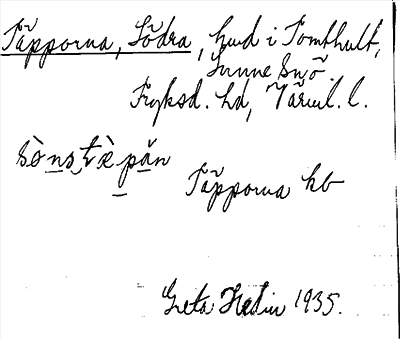 Täpporna, Södra, hmd i Tomthult,
Sunne sn
Fryksd. hd, Värml. l.
Täpporna kb
Greta Hedin 1935.